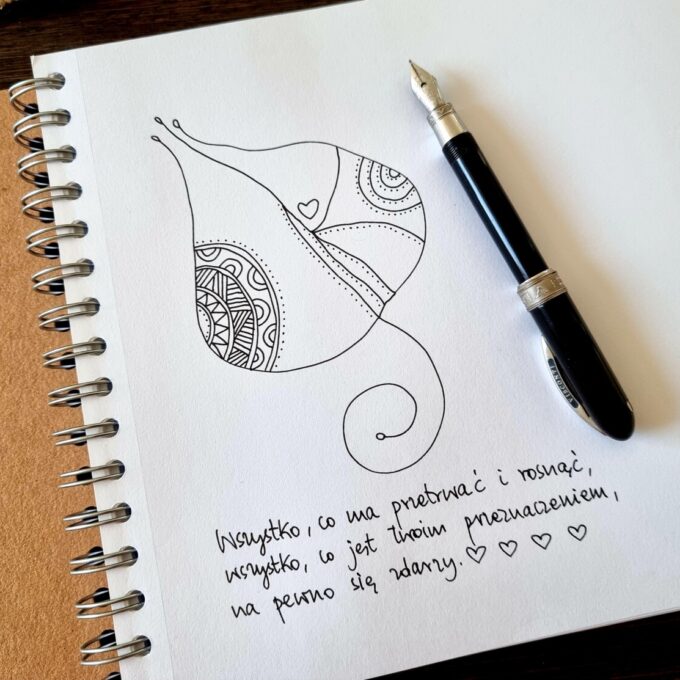 Wszystko, co ma przetrwać i rosnąć,
wszystko, co jest Twoim przeznaczeniem,
na pewno się zdarzy. ♡ ♡ ♡ ♡